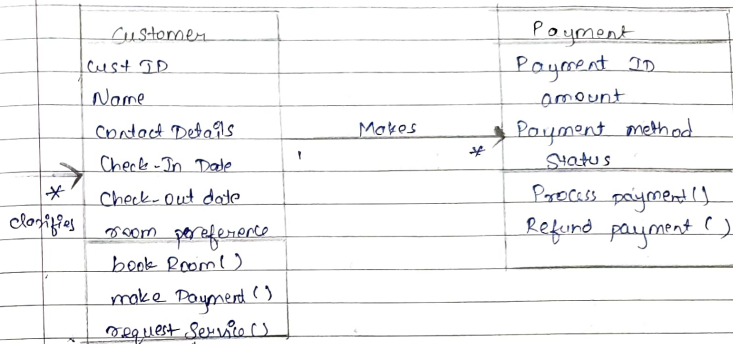 Customer
Cust ID
Name
Contact Details
Check-In Date
Check-out date
room preference
book Room()
make Payment()
request Service()
*
clarifies
Makes
1
*
Payment
Payment ID
amount
Payment method
Status
Process payment()
Refund payment()